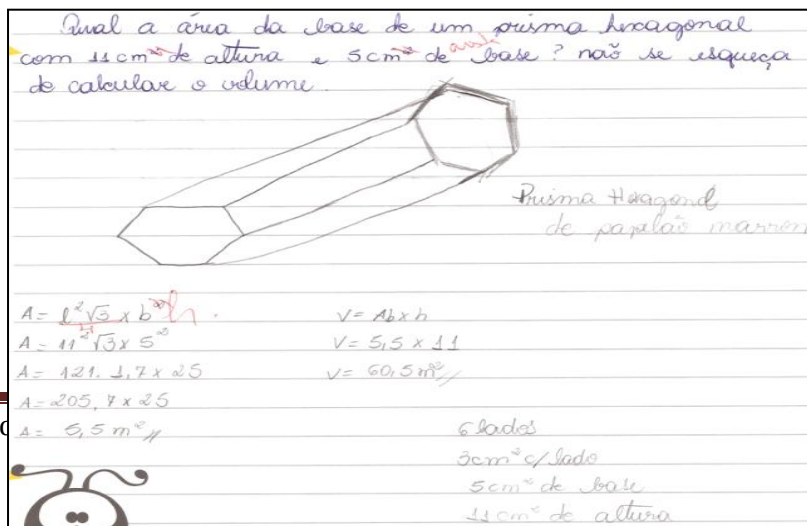 Qual a área da base de um prisma hexagonal
com 11cm² de altura e 5cm² de base ? não se esqueça
de calcular o volume.
Prisma Hexagonal
de papelão marrom
A = l²√3 x b² h.
A = 11²√3 x 5²
A = 121. 1,7 x 25
A = 205,7 x 25
A = 5,5 m²//
V = Ab x h
V = 5,5 x 11
V = 60,5m²//
6 lados
3cm² c/lado
5cm² de base
11cm² de altura